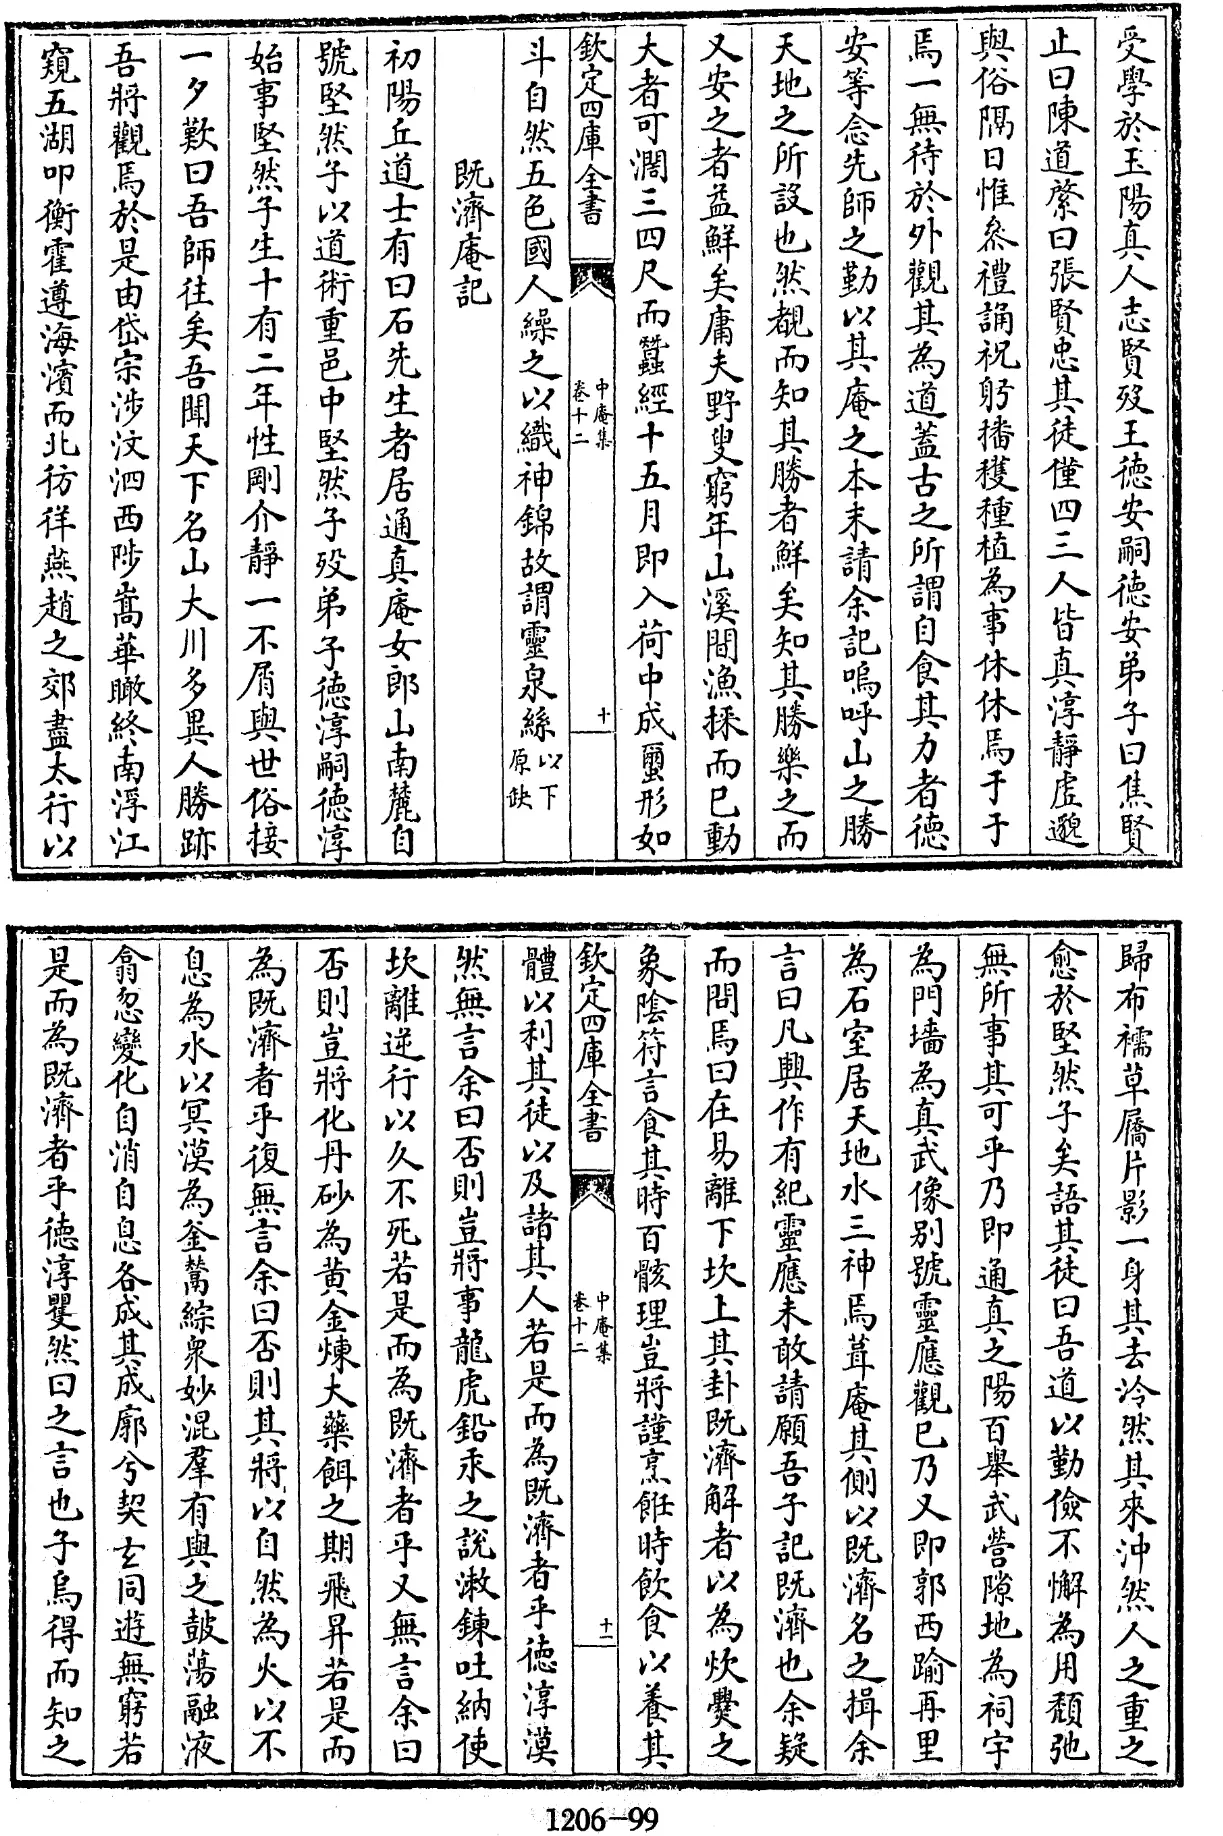 受學於玉陽真人志賢歿王德安嗣德安弟子曰焦賢
止曰陳道縏曰張賢忠其徒僅四三人皆真淳靜虛邈
與俗隔日惟叅禮誦祝躬播穫種植為事休休焉于于
焉一無待於外觀其為道蓋古之所謂自食其力者德
安等念先師之勤以其庵之本末請余記嗚呼山之勝
天地之所設也然覩而知其勝者鮮矣知其勝樂之而
又安之者益鮮矣庸夫野叟窮年山溪間漁採而已動
大者可濶三四尺而蠶經十五月即入荷中成蠒形如
欽定四庫全書
中庵集
卷十二
十
斗自然五色國人繰之以織神錦故謂靈泉絲以下原缺
既濟庵記
初陽丘道士有曰石先生者居通真庵女郎山南麓自
號堅然子以道術重邑中堅然子歿弟子德淳嗣德淳
始事堅然子生十有二年性剛介靜一不屑與世俗接
一夕歎曰吾師往矣吾聞天下名山大川多異人勝跡
吾將觀焉於是由岱宗涉汶泗西陟嵩華瞰終南浮江
窺五湖叩衡霍遵海濱而北彷徉燕趙之郊盡太行以
歸布襦草屩片影一身其去泠然其來沖然人之重之
愈於堅然子矣語其徒曰吾道以勤儉不懈為用頹弛
無所事其可乎乃即通真之陽百舉武營隙地為祠宇
為門墻為真武像别號靈應觀已乃又即郭西踰再里
為石室居天地水三神焉葺庵其側以既濟名之揖余
言曰凡興作有紀靈應未敢請願吾子記既濟也余疑
而問焉曰在易離下坎上其卦既濟解者以為炊爨之
象陰符言食其時百骸理豈將謹烹飪時飲食以養其
欽定四庫全書
中庵集
卷十二
十一
體以利其徒以及諸其人若是而為既濟者乎德淳漠
然無言余曰否則豈將事龍虎鉛汞之說漱鍊吐納使
坎離逆行以久不死若是而為既濟者乎又無言余曰
否則豈將化丹砂為黄金煉大藥餌之期飛昇若是而
為既濟者乎復無言余曰否則其將以自然為火以不
息為水以冥漠為釜鬵綜衆妙混羣有與之鼓蕩融液
翕忽變化自消自息各成其成廓兮契玄同遊無窮若
是而為既濟者乎德淳矍然曰之言也子烏得而知之
1206-99